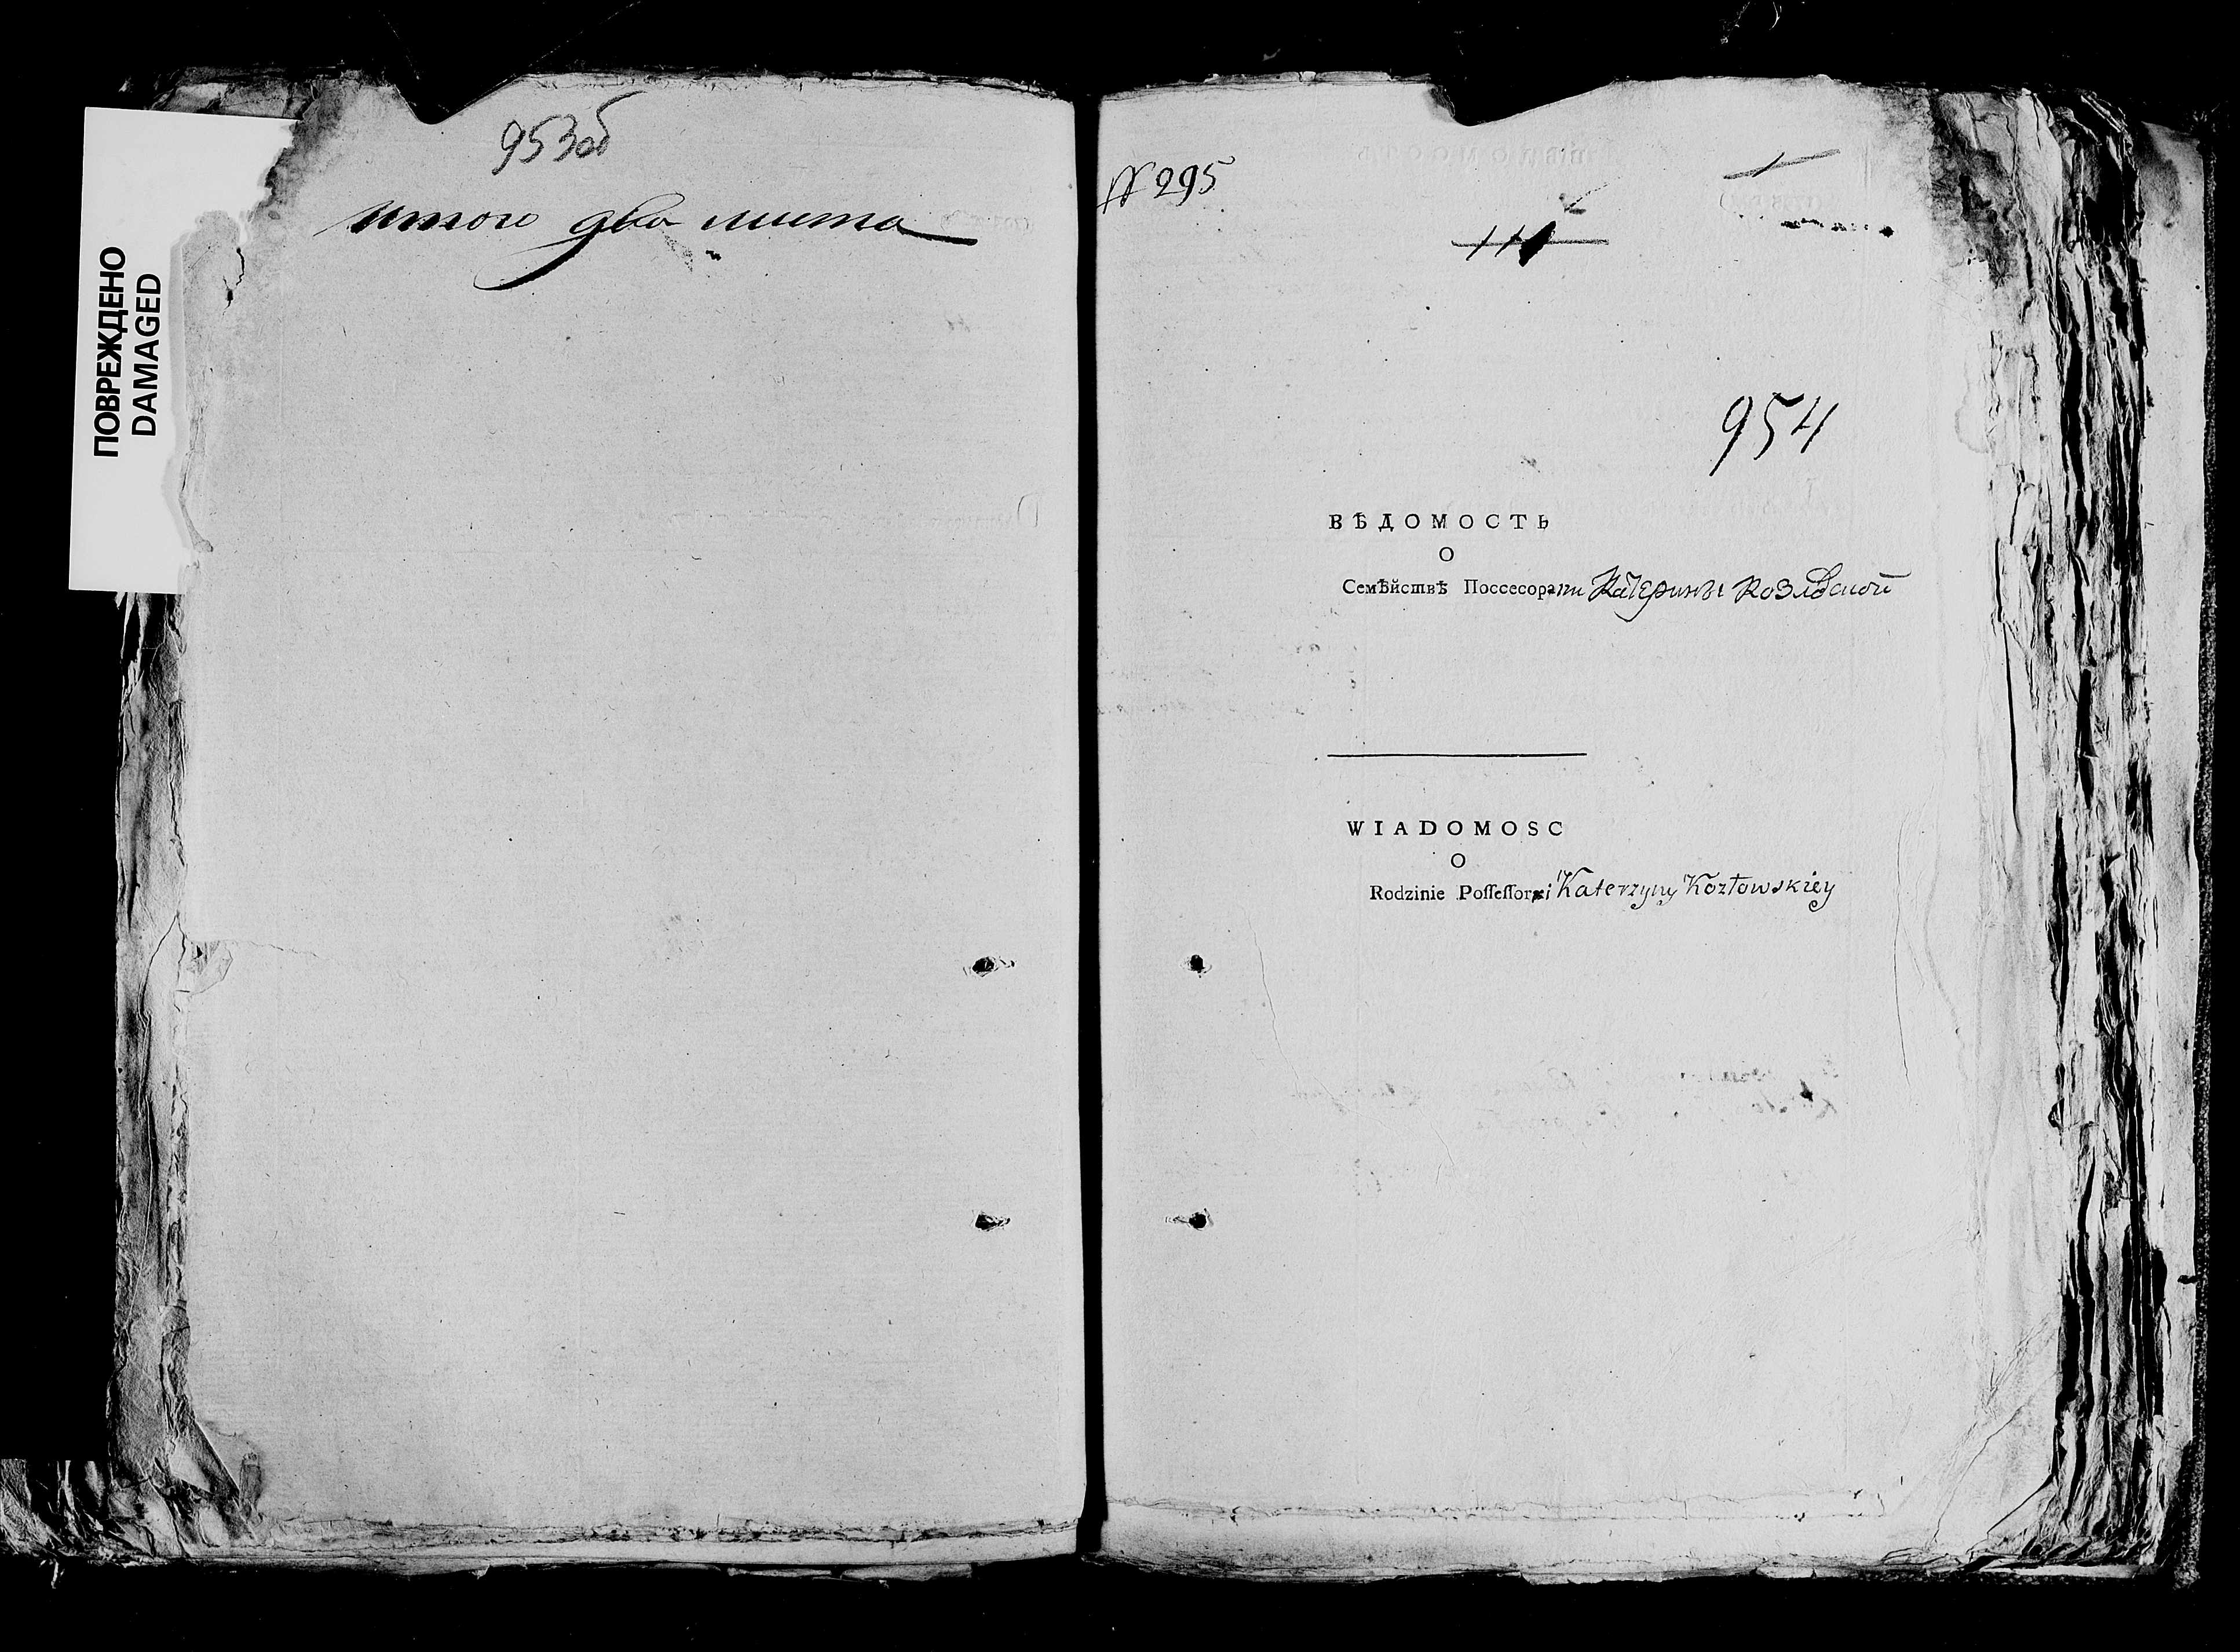 ПОВРЕЖДЕНО
DAMAGED
953об
итого два листа
N 295
954
ВѢДОМОСТЬ
О
Семѣйствѣ Поссесорани Катерины Козлвской
WIADOMOSC
O
Rodzinie Poſſeſſorki Katerzyny Kozłowskiey